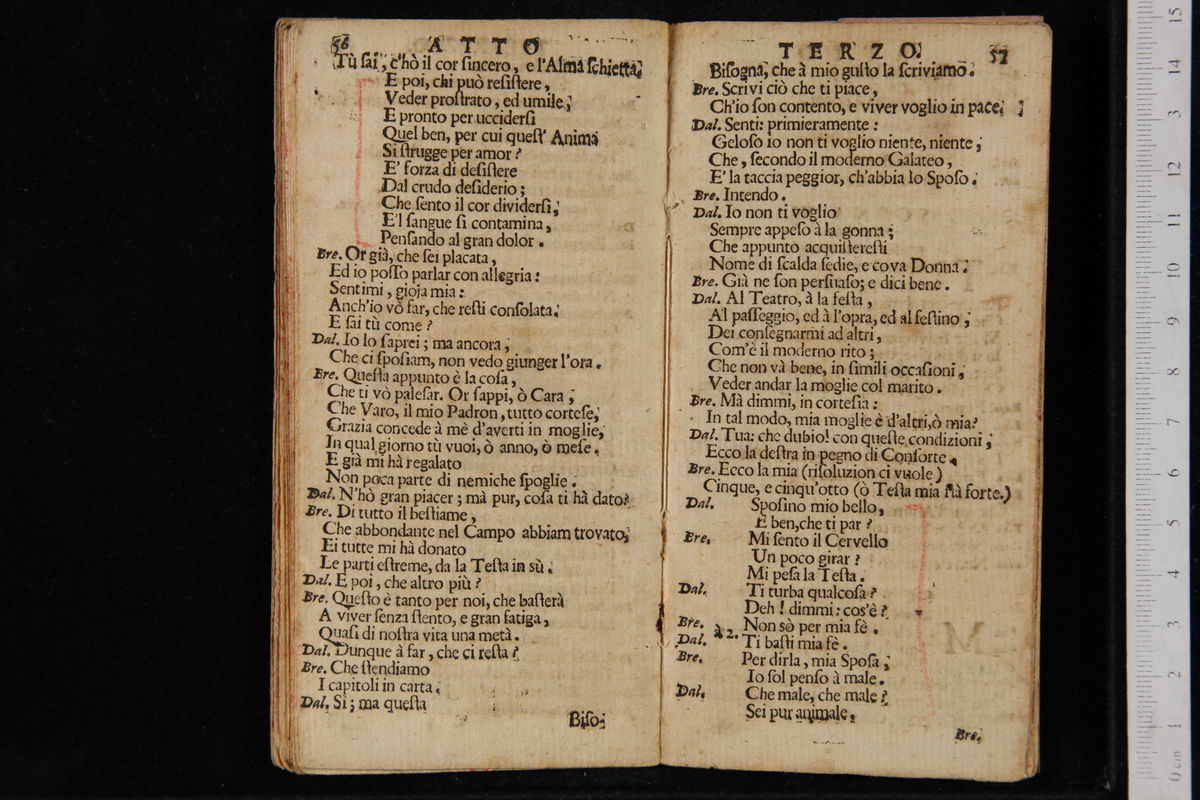 56 ATTO
Tù ſai, c'hò il cor ſincero, e l'Alma ſchietta;
E poi, chi può reſiſtere,
Veder proſtrato, ed umile;
E pronto per ucciderſi
Quel ben, per cui queſt' Anima
Si ſtrugge per amor?
E' forza di deſiſtere
Dal crudo deſiderio;
Che ſento il cor dividerſi;
E'l ſangue ſi contamina,
Penſando al gran dolor.
Bre. Or già, che ſei placata,
Ed io poſſo parlar con allegria:
Sentimi, gioja mia:
Anch'io vò far, che reſti conſolata;
E ſai tù come?
Dal. Io lo ſaprei; ma ancora,
Che ci ſpoſiam, non vedo giunger l'ora.
Bre. Queſta appunto è la coſa,
Che ti vò paleſar. Or ſappi, ò Cara;
Che Varo, il mio Padron, tutto corteſe,
Grazia concede à mè d'averti in moglie,
In qual giorno tù vuoi, ò anno, ò meſe.
E già mi hà regalato
Non poca parte di nemiche ſpoglie.
Dal. N'hò gran piacer; mà pur, coſa ti hà dato?
Bre. Di tutto il beſtiame,
Che abbondante nel Campo abbiam trovato,
Ei tutte mi hà donato
Le parti eſtreme, da la Teſta in sù.
Dal. E poi, che altro più?
Bre. Queſto è tanto per noi, che baſterà
A viver ſenza ſtento, e gran fatiga,
Quaſi di noſtra vita una metà.
Dal. Dunque à far, che ci reſta?
Bre. Che ſtendiamo
I capitoli in carta.
Dal. Sì; ma queſta
Biſo-
TERZO. 57
Biſogna, che à mio guſto la ſcriviamo.
Bre. Scrivi ciò che ti piace,
Ch'io ſon contento, e viver voglio in pace;
Dal. Senti: primieramente:
Geloſo io non ti voglio niente, niente;
Che, ſecondo il moderno Galateo,
E' la taccia peggior, ch'abbia lo Spoſo.
Bre. Intendo.
Dal. Io non ti voglio
Sempre appeſo à la gonna;
Che appunto acquiſtereſti
Nome di ſcalda ſedie, e cova Donna.
Bre. Già ne ſon perſuaſo; e dici bene.
Dal. Al Teatro, à la feſta,
Al paſſeggio, ed à l'opra, ed al feſtino,
Dei conſegnarmi ad altri,
Com'è il moderno rito;
Che non và bene, in ſimili occaſioni,
Veder andar la moglie col marito.
Bre. Mà dimmi, in corteſia:
In tal modo, mia moglie è d'altri, ò mia?
Dal. Tua: che dubio! con queſte condizioni,
Ecco la deſtra in pegno di Conſorte.
Bre. Ecco la mia (riſoluzion ci vuole)
Cinque, e cinqu'otto (ò Teſta mia ſtà forte.)
Dal. Spoſino mio bello,
E ben, che ti par?
Bre. Mi ſento il Cervello
Un poco girar?
Mi peſa la Teſta.
Dal. Ti turba qualcoſa?
Deh! dimmi: cos'è?
Bre. Non sò per mia fè.
Dal. à 2. Ti baſti mia fè.
Bre. Per dirla, mia Spoſa,
Io ſol penſo à male.
Dal. Che male, che male?
Sei pur animale.
Bre.